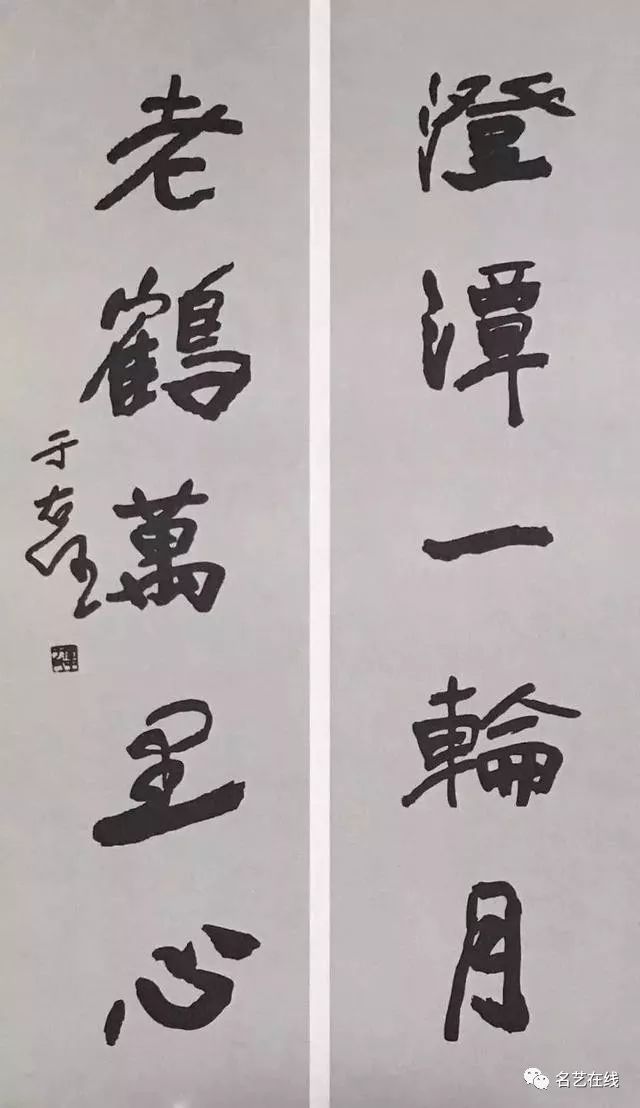 澄潭一輪月
老鶴萬里心
于右任
名艺在线